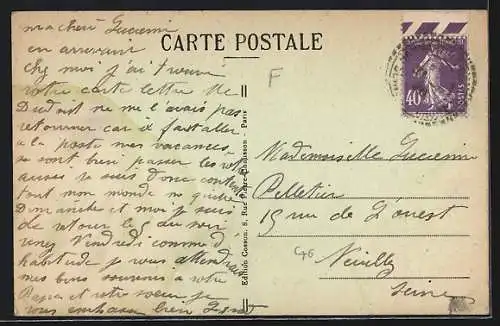 ma cheri Lucienne
en arrivant
chez moi j'ai trouvé
votre carte lettre ne
ne me l'avais pas
retourner car il faut aller
a la poste mes vacances
se sont bien passer les votres
aussi je suis donc contente
tout mon monde ma quitté
Dimanche et moi je suis
de retour
venez Vendredi comme d'
habitude je vous attendrais
mes bons souvenirs a votre
Papa et votre soeur je
vous embrasse bien
CARTE POSTALE
F
Edition Cosson, 8, Rue - Paris
40
Mademoiselle Lucienne
Pelletier
15 rue de L'ouest
Neuilly
Seine